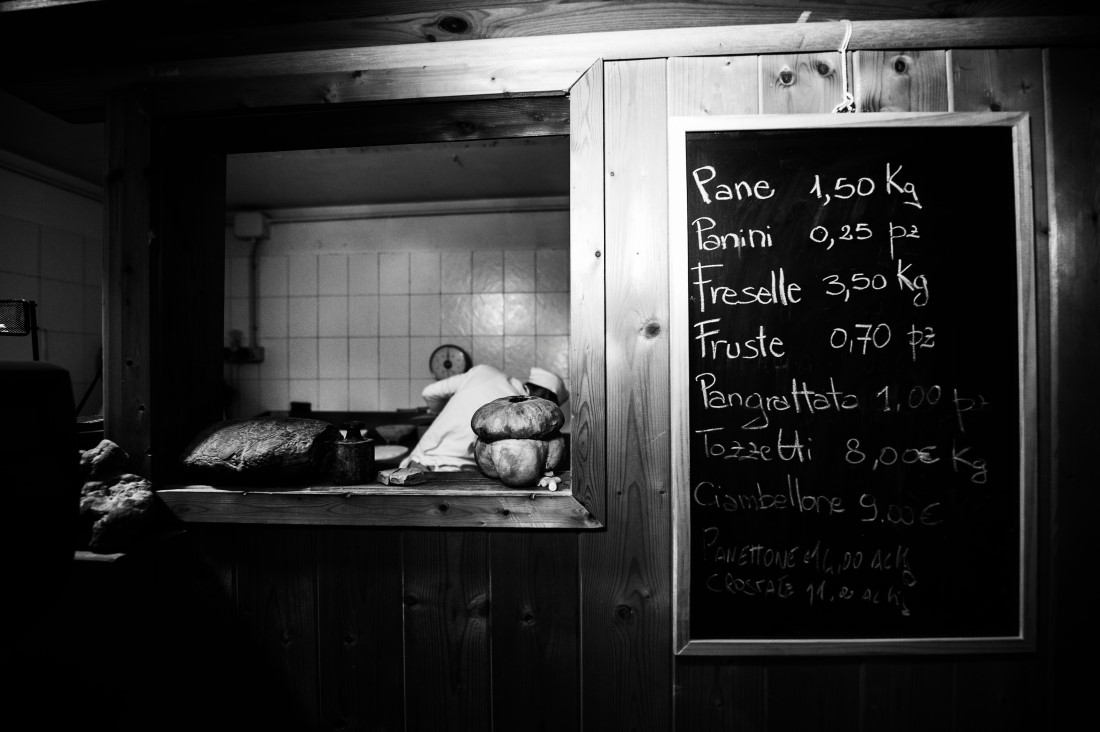 Pane 1,50 Kg
Panini 0,25 pz
Freselle 3,50 Kg
Fruste 0,70 pz
Pangrattato 1,00 pz
Tozzetti 8,00€ Kg
Ciambellone 9.00€
PANETTONE 14,00 AL Kg
CROSTATE 11,00 AL Kg